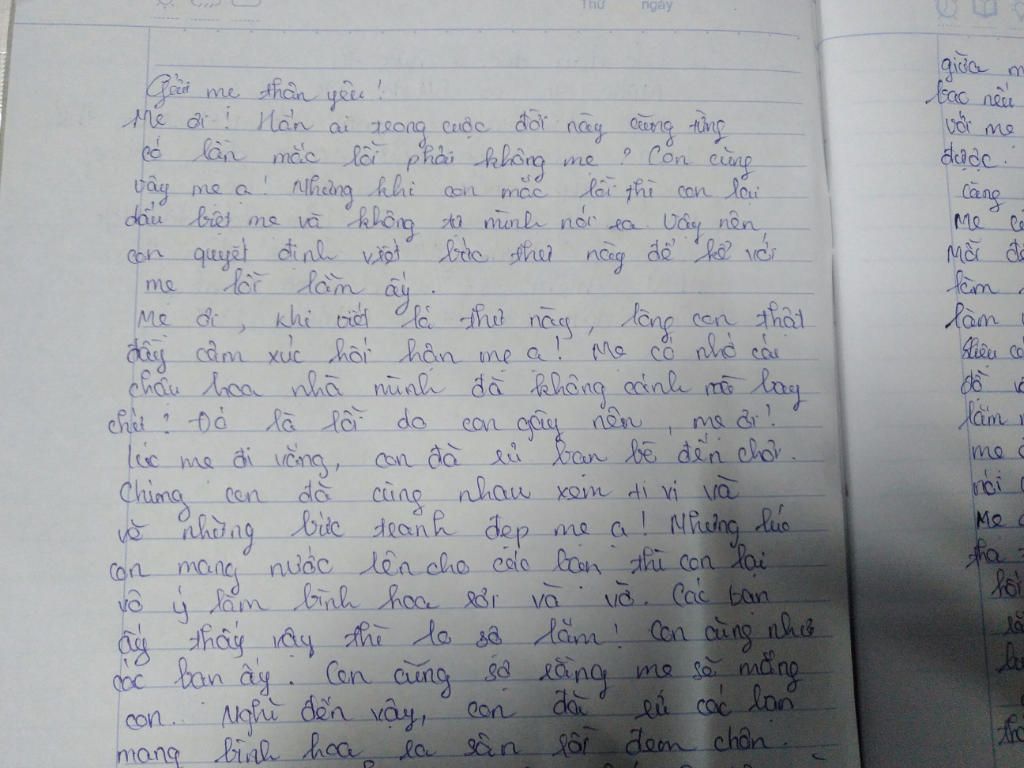 Thứ ngày
Gửi mẹ thân yêu!
Mẹ ơi! Hẳn ai trong cuộc đời này cũng từng
có lần mắc lỗi phải không mẹ? Con cũng
vậy mẹ ạ! Nhưng khi con mắc lỗi thì con lại
dấu biệt mẹ và không tự mình nói ra. Vậy nên,
con quyết định viết bức thư này để kể với
mẹ lỗi lầm ấy.
Mẹ ơi, khi viết lá thư này, lòng con thật
đầy cảm xúc hối hận mẹ ạ! Mẹ có nhớ cái
chậu hoa nhà mình đã không cánh mà bay
chứ? Đó là lỗi do con gây nên, mẹ ơi!
Lúc mẹ đi vắng, con đã rủ bạn bè đến chơi.
Chúng con đã cùng nhau xem ti vi và
vẽ những bức tranh đẹp mẹ ạ! Nhưng lúc
con mang nước lên cho các bạn thì con lại
vô ý làm bình hoa rơi và vỡ. Các bạn
ấy thấy vậy thì lo sợ lắm! Con cũng như
các bạn ấy. Con cũng sợ rằng mẹ sẽ mắng
con. Nghĩ đến vậy, con đã rủ các bạn
mang bình hoa ra sân rồi đem chôn.
giữa m
bạc nếu
với mẹ
được.
càng
Mẹ c
Mỗi đ
làm
làm
điều c
đồ
lắm
mẹ
nói
Mẹ
tha
lỗi